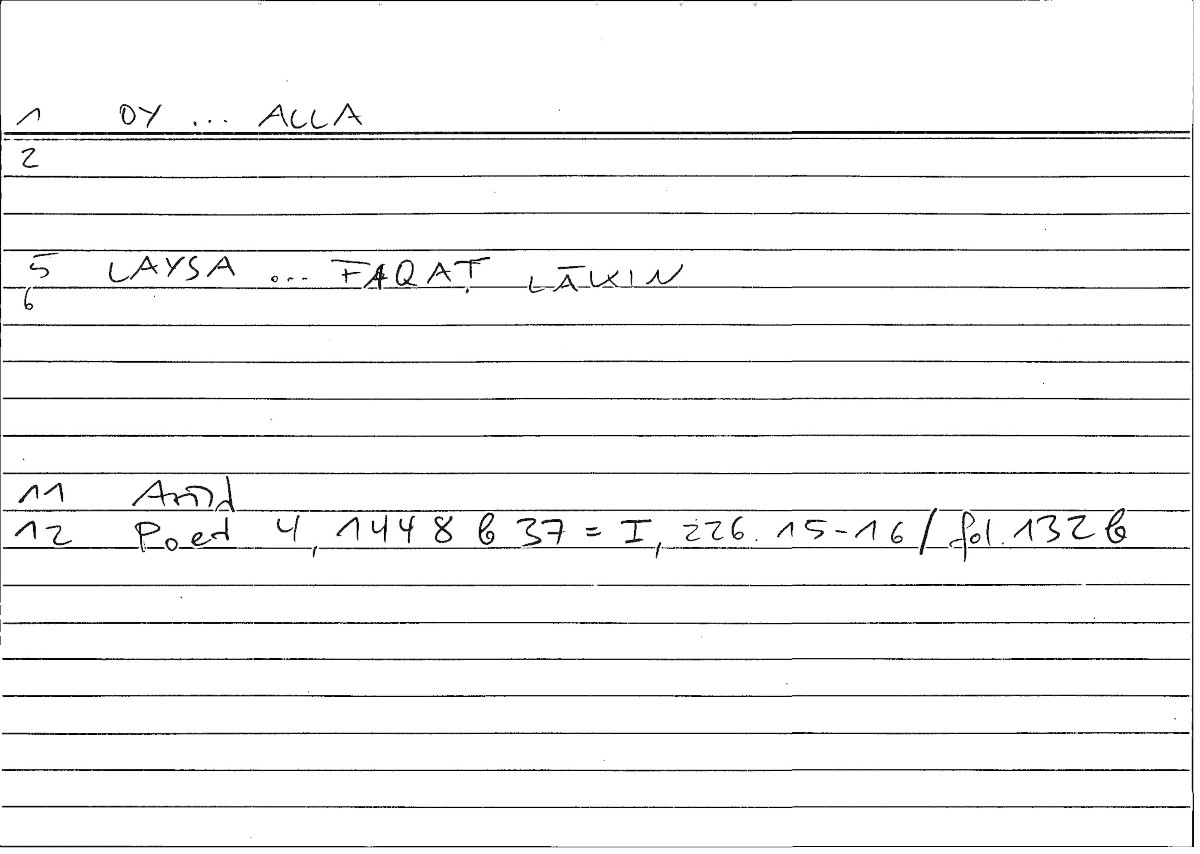 1 OY ... ALLA
2
5 LAYSA ... FAQAṬ LĀKIN
6
11
12 Poet 4, 1448 b 37 = I, 226.15-16 / fol. 132 b